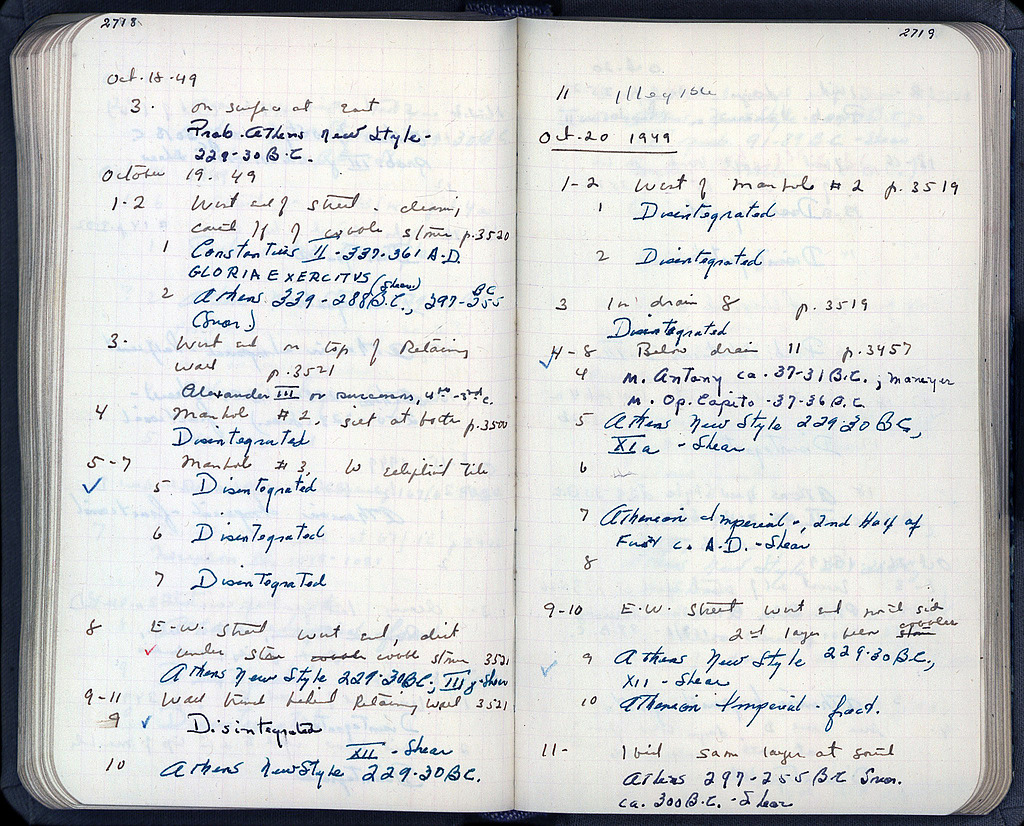 2718
Oct. 18-49
3. on surface at East
Prob. Athens New Style-
229-30 B.C.
October 19. 49
1-2 West end of street. cleaning
cobble stone p.3520
1 Constantius II - 337-361 A.D.
GLORIA EXERCITVS (Shear.)
2 Athens. 339-288 B.C., 297-255 BC
(Svor.)
3. West end on top of Retaining
wall p.3521
Alexander III or successors, 4th-3rd c.
4 Manhole #2, silt at bottom p.3500
Disintegrated
5-7 Manhole #3, W elliptical tile
5 Disintegrated
6 Disintegrated
7 Disintegrated
8 E-W. Street West end, dirt
under stone cobble cobble stone 3521
Athens New Style 229-30 BC; III g-Shear
9-11 West trench behind Retaining wall 3521
9 Disintegrated
XII - Shear
10 Athens New Style 229-30 BC.
2719
11 Illegible
Oct. 20 1949
1-2 West of Manhole #2 p.3519
1 Disintegrated
2 Disintegrated
3 In drain 8 p.3519
Disintegrated
4-8 Below drain 11 p.3457
4 M. Antony ca. 37-31 B.C.; moneyer
M. Op. Capito - 37-36 B.C.
5 Athens New Style 229-30 BC,
XI a - Shear
6
7 Athenian Imperial-, 2nd Half of
First c. A.D. - Shear
8
9-10 E.W. Street West end north side
2nd layer below stone cobbles
9 Athens New Style 229-30 B.C.,
XII - Shear
10 Athenian Imperial - fract.
11- Ibid same layer at south
Athens 297-255 BC Svor.
ca. 300 B.C. - Shear